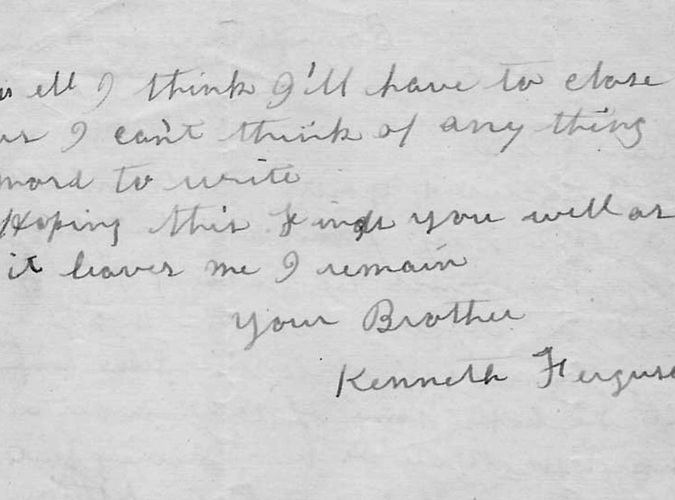 well I think I'll have to close
as I can't think of any thing
more to write
Hoping this finds you well as
it leaves me I remain
Your Brother
Kenneth Fergus